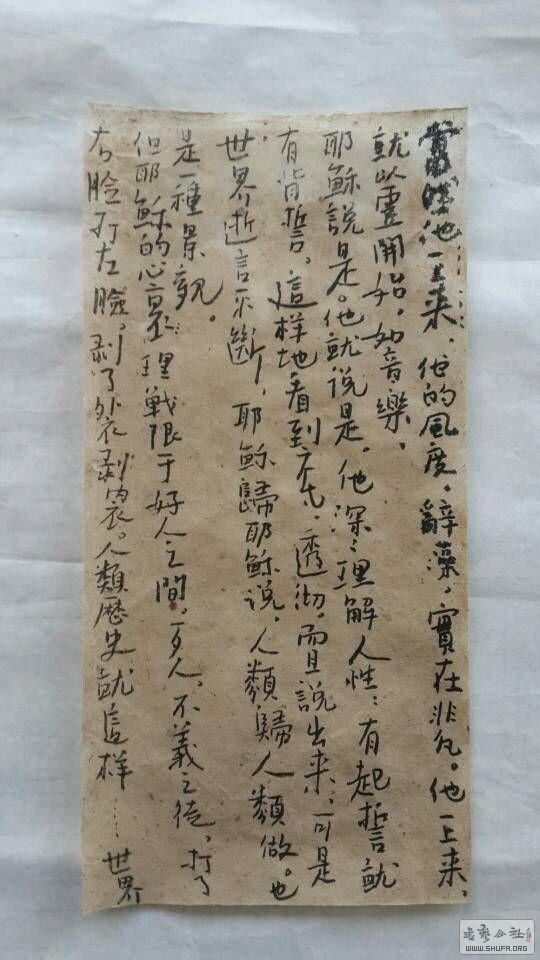 當然他一上来，他的風度，辭藻，實在非凡。他一上来，
就以靈開始，如音樂，
耶穌說是。他就说是，他深深理解人性：有起誓就
有背誓。這样地看到底，透沏，而且說出来，可是
世界逝言不斷，耶穌歸耶穌说，人類歸人類做。也
是一種景觀。
但耶穌的心裏理戰限于好人之間，歹人、不義之徒，打了
右臉打左臉，剥了外衣剥内衣。人類歷史就這样……世界
書藝公社
WWW.SHUFA.ORG